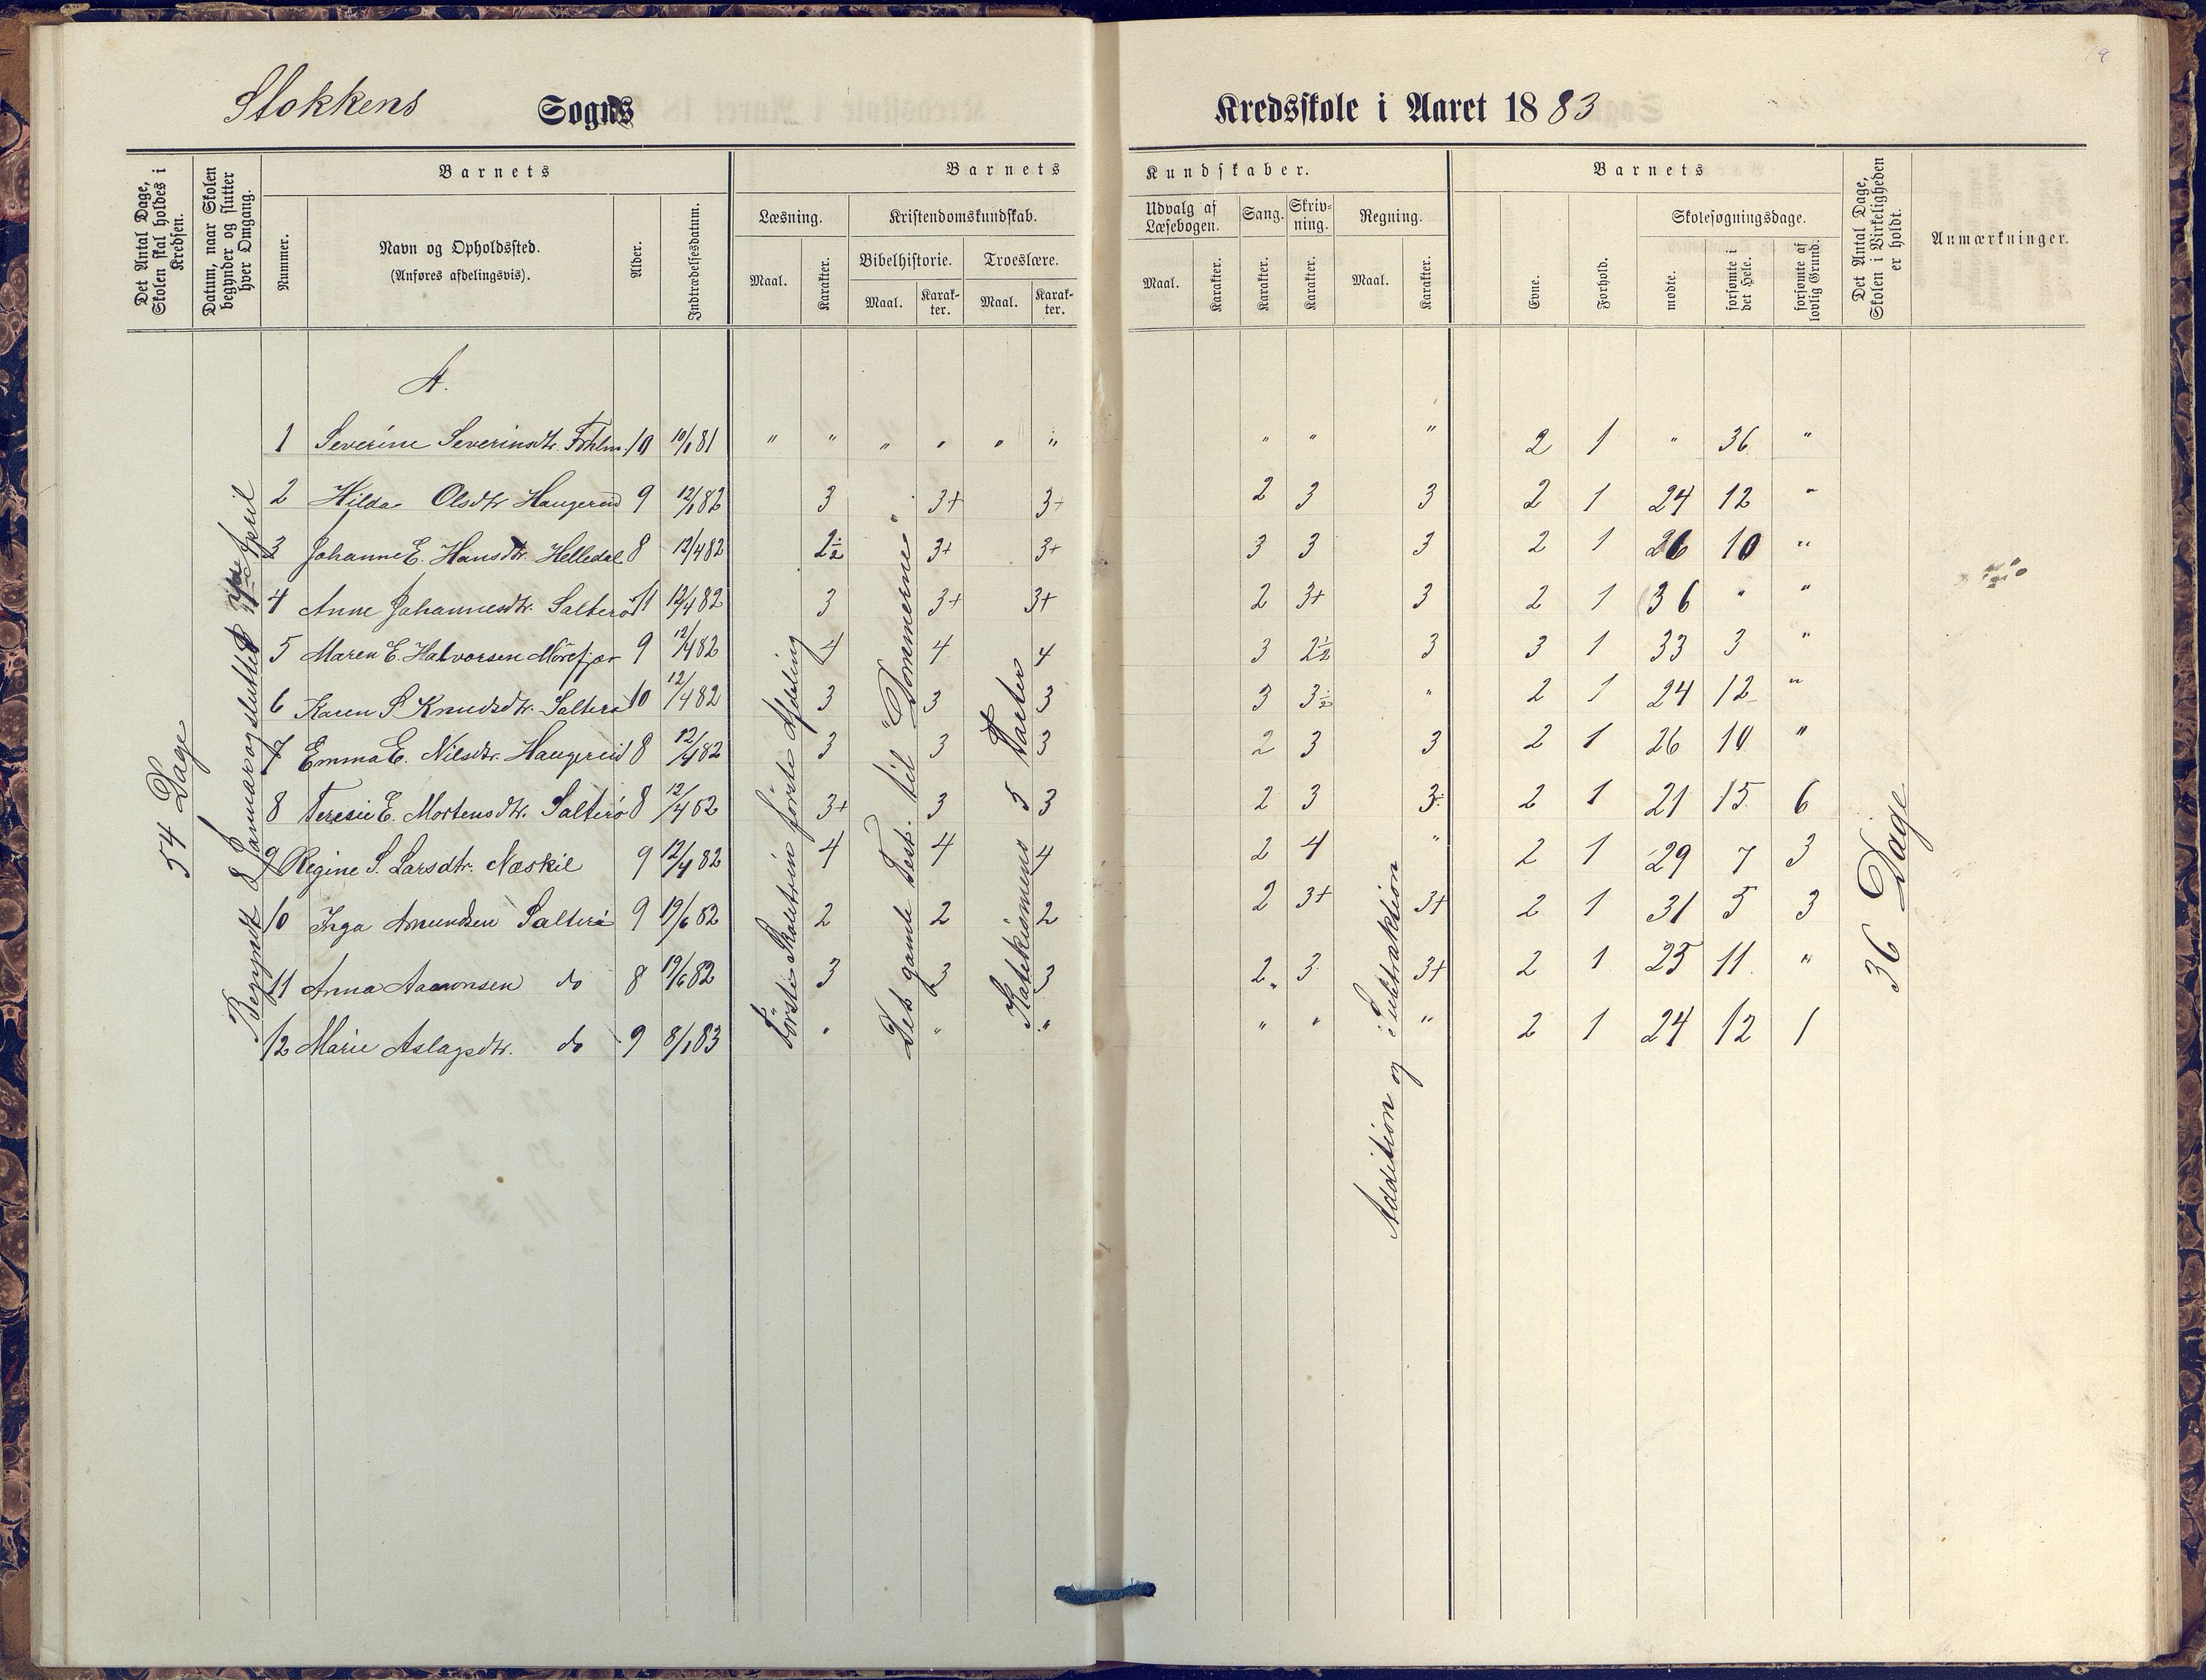 Stokkens Sogns Kredsskole i Aaret 1883
Det Antal Dage, Skolen skal holdes i Kredsen.
Datum, naar Skolen begynder og slutter hver Omgang.
Barnets
Nummer.
Navn og Opholdssted.
(Anføres afdelingsvis).
Alder.
Indtrædelsesdatum.
Barnets Kundskaber.
Læsning.
Maal.
Karakter.
Kristendomskundskab.
Bibelhistorie.
Maal.
Karakter.
Troeslære.
Maal.
Karakter.
Udvalg af Læsebogen.
Maal.
Karakter.
Sang.
Karakter.
Skrivning.
Karakter.
Regning.
Maal.
Karakter.
Barnets
Evne.
Forhold.
Skolesøgningsdage.
mødte.
forsømte i det Hele.
forsømte af lovlig Grund.
Det Antal Dage, Skolen i Virkeligheden er holdt.
Anmærkninger.
A.
1 Severine Severinsdtr. 10 10/1 81 " " " " " " " " " 2 1 " 36 "
2 Hilda Olsdtr Haugereid 9 12/1 82 3 3+ 3+ 2 3 3 2 1 24 12 "
3 Johanne E. Hansdtr. Helledal 8 12/4 82 2½ 3+ 3+ 3 3 3 2 1 26 10 "
4 Anne Johannesdtr. Salterö 11 12/4 82 3 3+ 3+ 2 3+ 3 2 1 36 " "
5 Maren E. Halvorsen Mörefjær 9 12/4 82 4 4 4 3 2½ 3 3 1 33 3 "
6 Karen S Knudsdtr. Salterö 10 12/4 82 3 3 3 3 3½ " 2 1 24 12 "
7 Emma E. Nilsdtr. Haugereid 8 12/4 82 3 3 3 2 3 3 2 1 26 10 "
8 Teresie E. Mortensdtr. Salterö 8 12/4 82 3+ 3 3 2 3 3÷ 2 1 21 15 6
9 Regine S. Larsdtr. Næskil 9 12/4 82 4 4 4 2 4 " 2 1 29 7 3
10 Inga Amundsen Salterö 9 19/6 82 2 2 2 2 3+ 3+ 2 1 31 5 3
11 Anna Aaronsen do 8 19/6 82 3 3 3 2 3 3+ 2 1 25 11 "
12 Marie Aslagsdtr. do 9 8/1 83 " " " " " " 2 1 24 12 1
54 Dage
Begyndt 8 Januar og sluttet April
Förste Skoletrin förste Afdeling
Det gamle Test. til "Dommerne"
Katekismens 5 Parter
Addition og Subtraktion
36 Dage